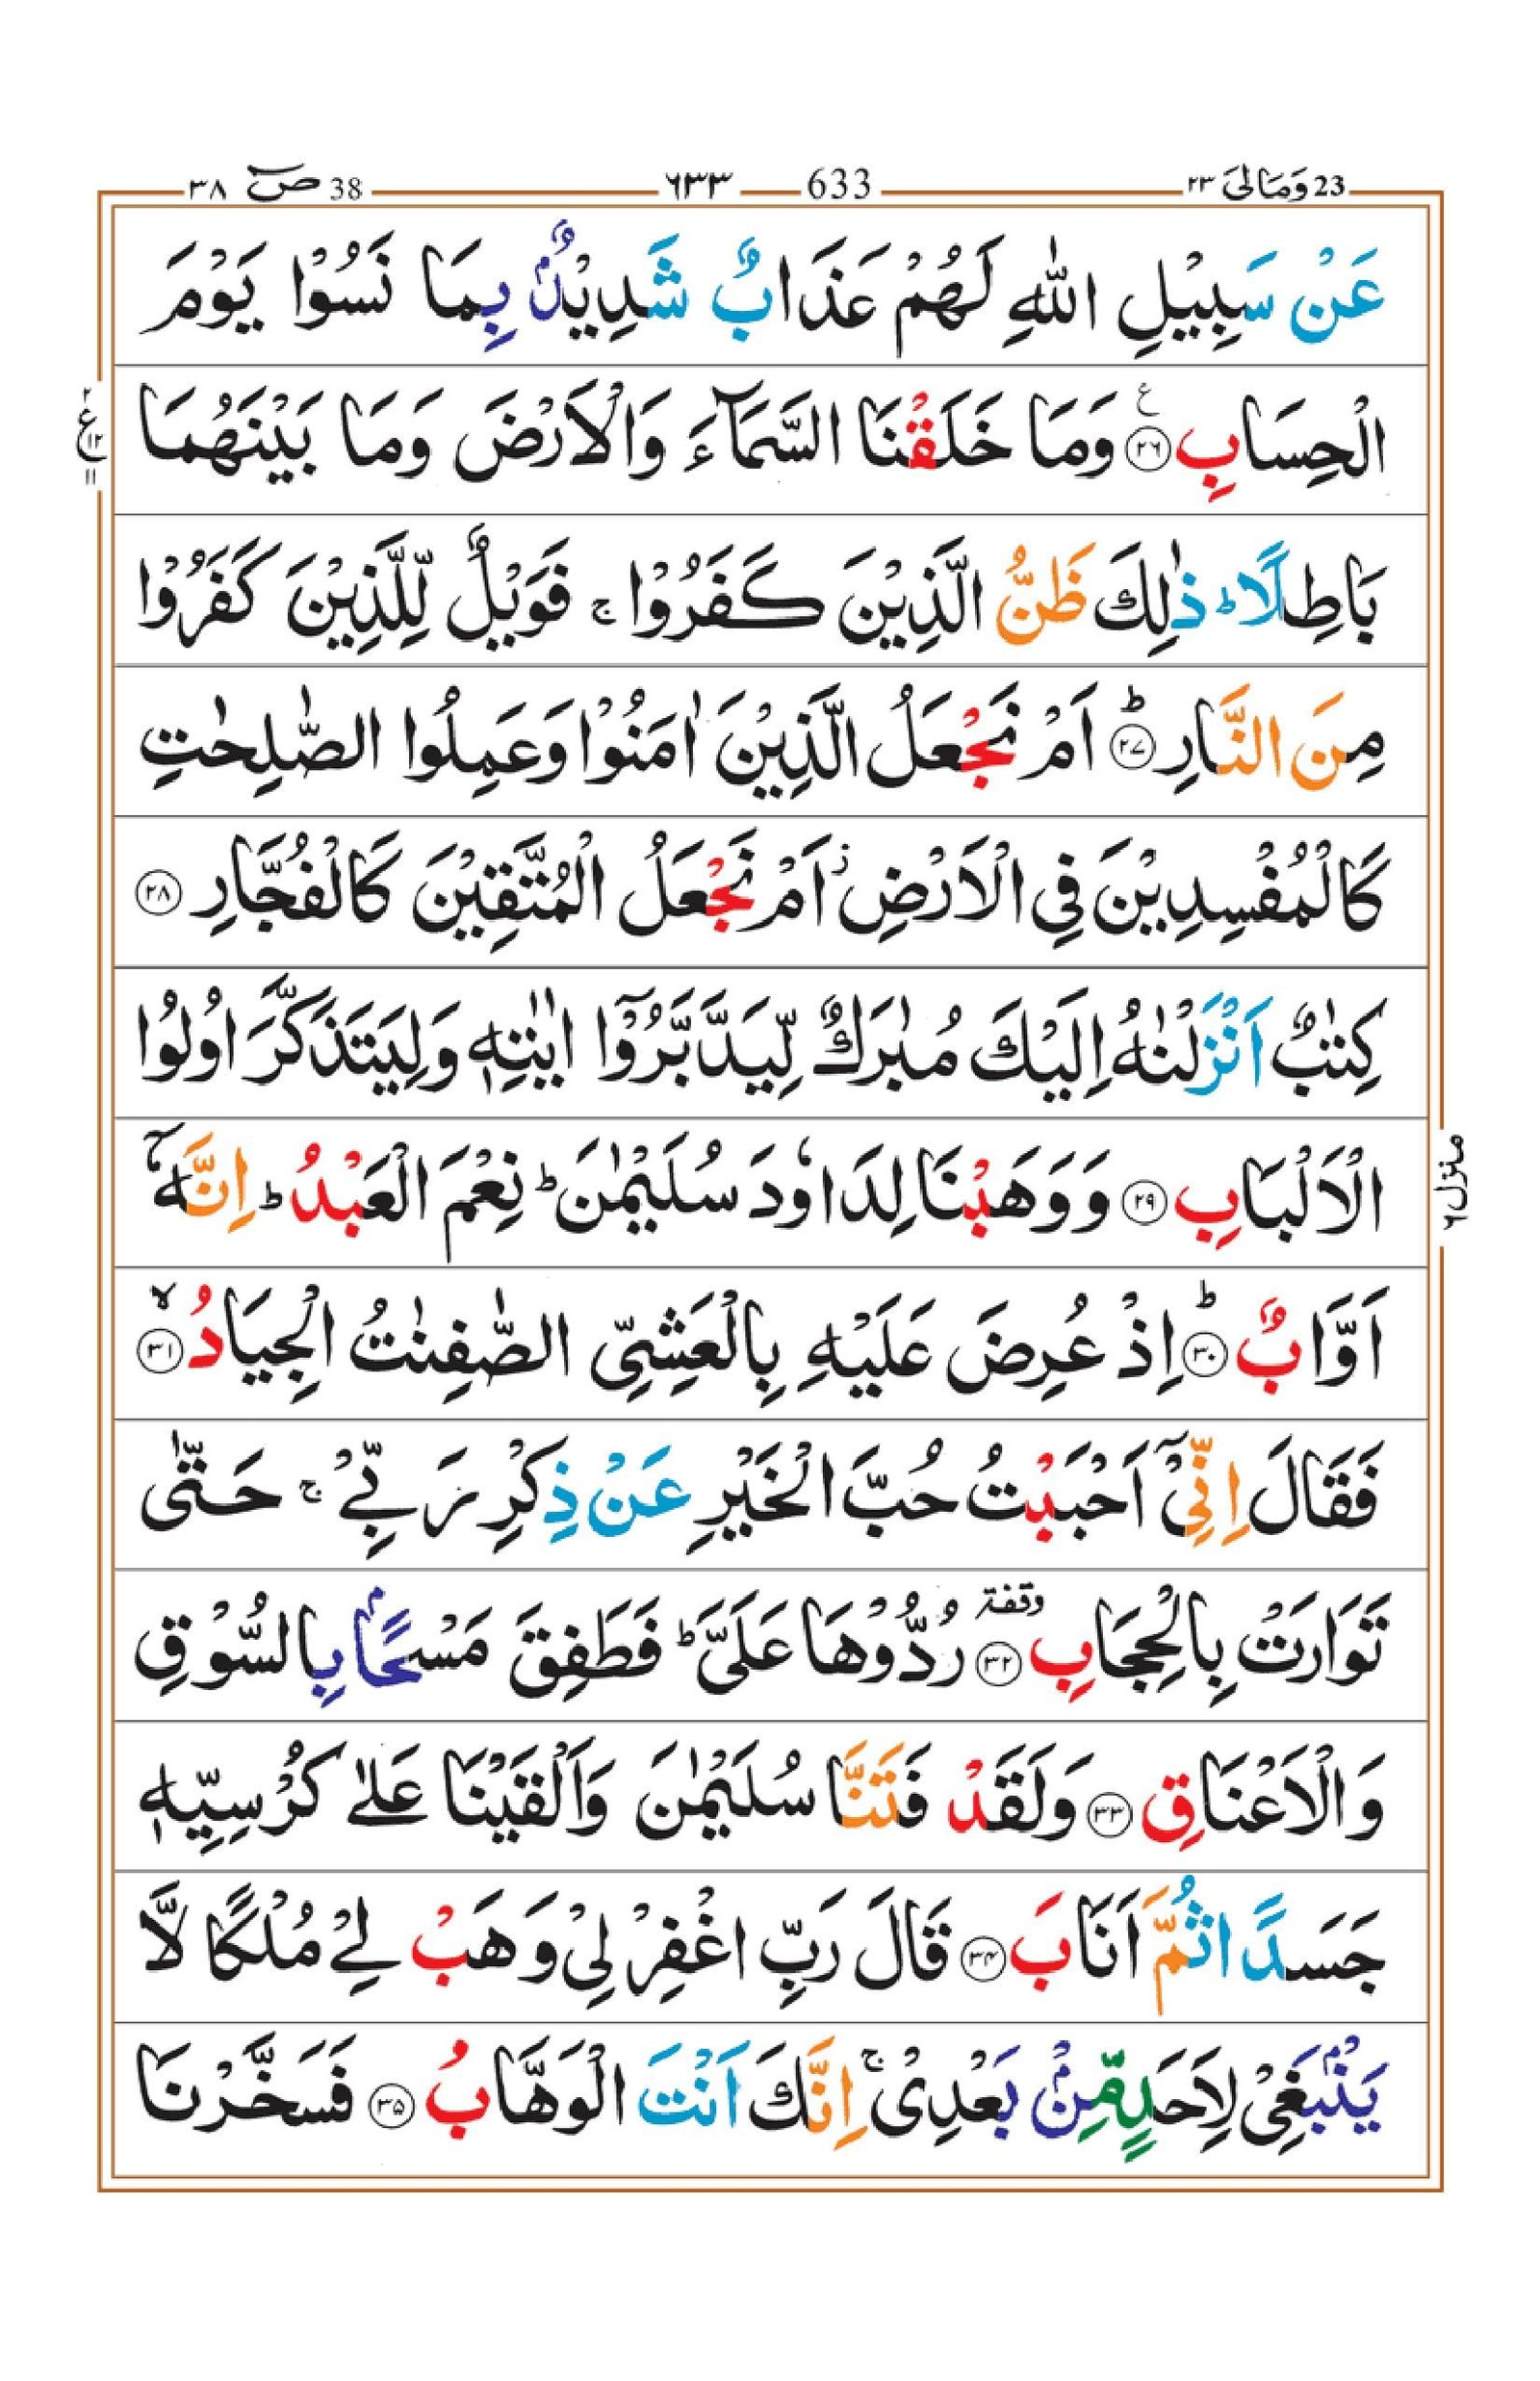 23 وَمَالِیَ ۲۳ 633 ۶۳۳ 38 صٓ ۳۸
عَنْ سَبِيْلِ اللّٰهِ لَهُمْ عَذَابٌ شَدِيْدٌۢ بِمَا نَسُوْا يَوْمَ
الْحِسَابِ ﴿۲۶﴾ ع وَمَا خَلَقْنَا السَّمَآءَ وَالْاَرْضَ وَمَا بَيْنَهُمَا
بَاطِلًا ؕ ذٰلِكَ ظَنُّ الَّذِيْنَ كَفَرُوْا ۚ فَوَيْلٌ لِّلَّذِيْنَ كَفَرُوْا
مِنَ النَّارِ ؕ ﴿۲۷﴾ اَمْ نَجْعَلُ الَّذِيْنَ اٰمَنُوْا وَعَمِلُوا الصّٰلِحٰتِ
كَالْمُفْسِدِيْنَ فِي الْاَرْضِ ز اَمْ نَجْعَلُ الْمُتَّقِيْنَ كَالْفُجَّارِ ﴿۲۸﴾
كِتٰبٌ اَنْزَلْنٰهُ اِلَيْكَ مُبٰرَكٌ لِّيَدَّبَّرُوْٓا اٰيٰتِهٖ وَلِيَتَذَكَّرَ اُولُوا
الْاَلْبَابِ ﴿۲۹﴾ وَوَهَبْنَا لِدَاوٗدَ سُلَيْمٰنَ ؕ نِعْمَ الْعَبْدُ ؕ اِنَّهٗٓ
اَوَّابٌ ؕ ﴿۳۰﴾ اِذْ عُرِضَ عَلَيْهِ بِالْعَشِيِّ الصّٰفِنٰتُ الْجِيَادُ ۙ ﴿۳۱﴾
فَقَالَ اِنِّيْٓ اَحْبَبْتُ حُبَّ الْخَيْرِ عَنْ ذِكْرِ رَبِّيْ ۚ حَتّٰى
تَوَارَتْ بِالْحِجَابِ ﴿۳۲﴾ وقفة رُدُّوْهَا عَلَيَّ ؕ فَطَفِقَ مَسْحًۢا بِالسُّوْقِ
وَالْاَعْنَاقِ ﴿۳۳﴾ وَلَقَدْ فَتَنَّا سُلَيْمٰنَ وَاَلْقَيْنَا عَلٰى كُرْسِيِّهٖ
جَسَدًا ثُمَّ اَنَابَ ﴿۳۴﴾ قَالَ رَبِّ اغْفِرْ لِيْ وَهَبْ لِيْ مُلْكًا لَّا
يَنْۢبَغِيْ لِاَحَدٍ مِّنْۢ بَعْدِيْ ۚ اِنَّكَ اَنْتَ الْوَهَّابُ ﴿۳۵﴾ فَسَخَّرْنَا
۲ ع ۱۲ ۱۱
منزل ۶